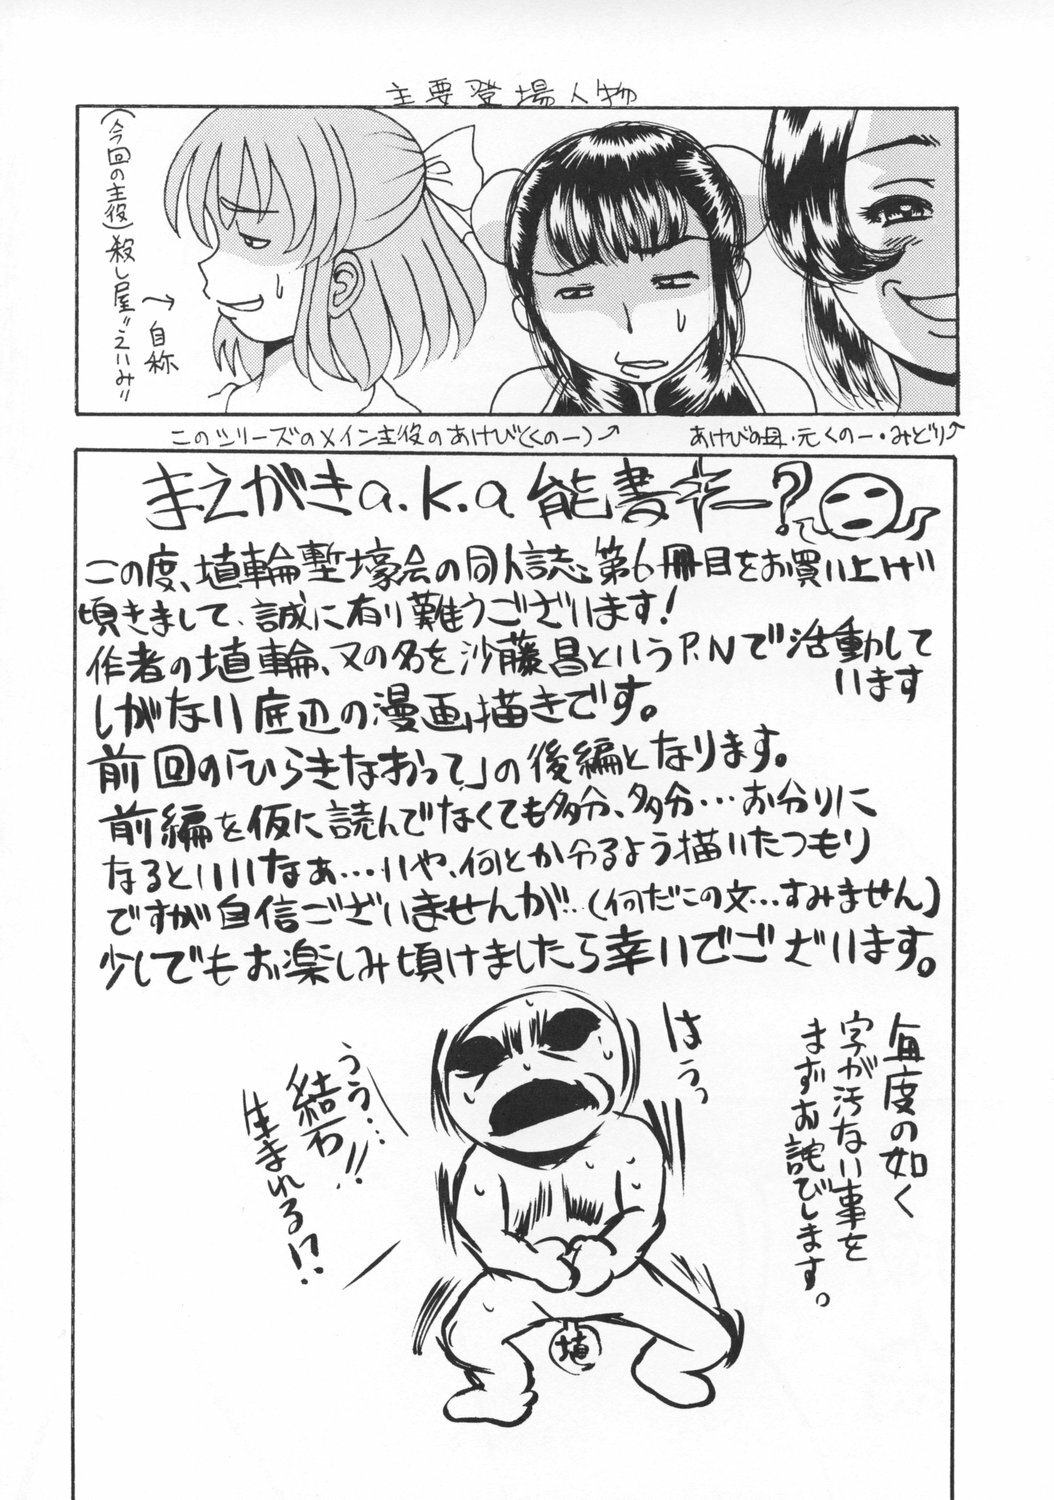 主要登場人物
(今回の主役)殺し屋"えいみ"
→自称
このシリーズのメイン主役のあけび(くの一)→
あけびの母・元くの一・みどり→
まえがきa.k.a能書キー?
この度、埴輪塹壕会の同人誌、第6冊目をお買い上げ
頃きまして、誠に有り難うございます!
作者の埴輪、又の名を沙藤昌というP.Nで活動して
います
しがない底辺の漫画描きです。
前回の「ひらきなおって」の後編となります。
前編を仮に読んでなくても多分、多分…お分りに
なるといいなぁ…いや、何とか分るよう描いたつもり
ですが自信ございませんが…(何だこの文…すみません)
少しでもお楽しみ頃けましたら幸いでございます。
毎度の如く
字が汚ない事を
まずお詫びします。
はうっ
うう…
結石!!
生まれる!?
埴